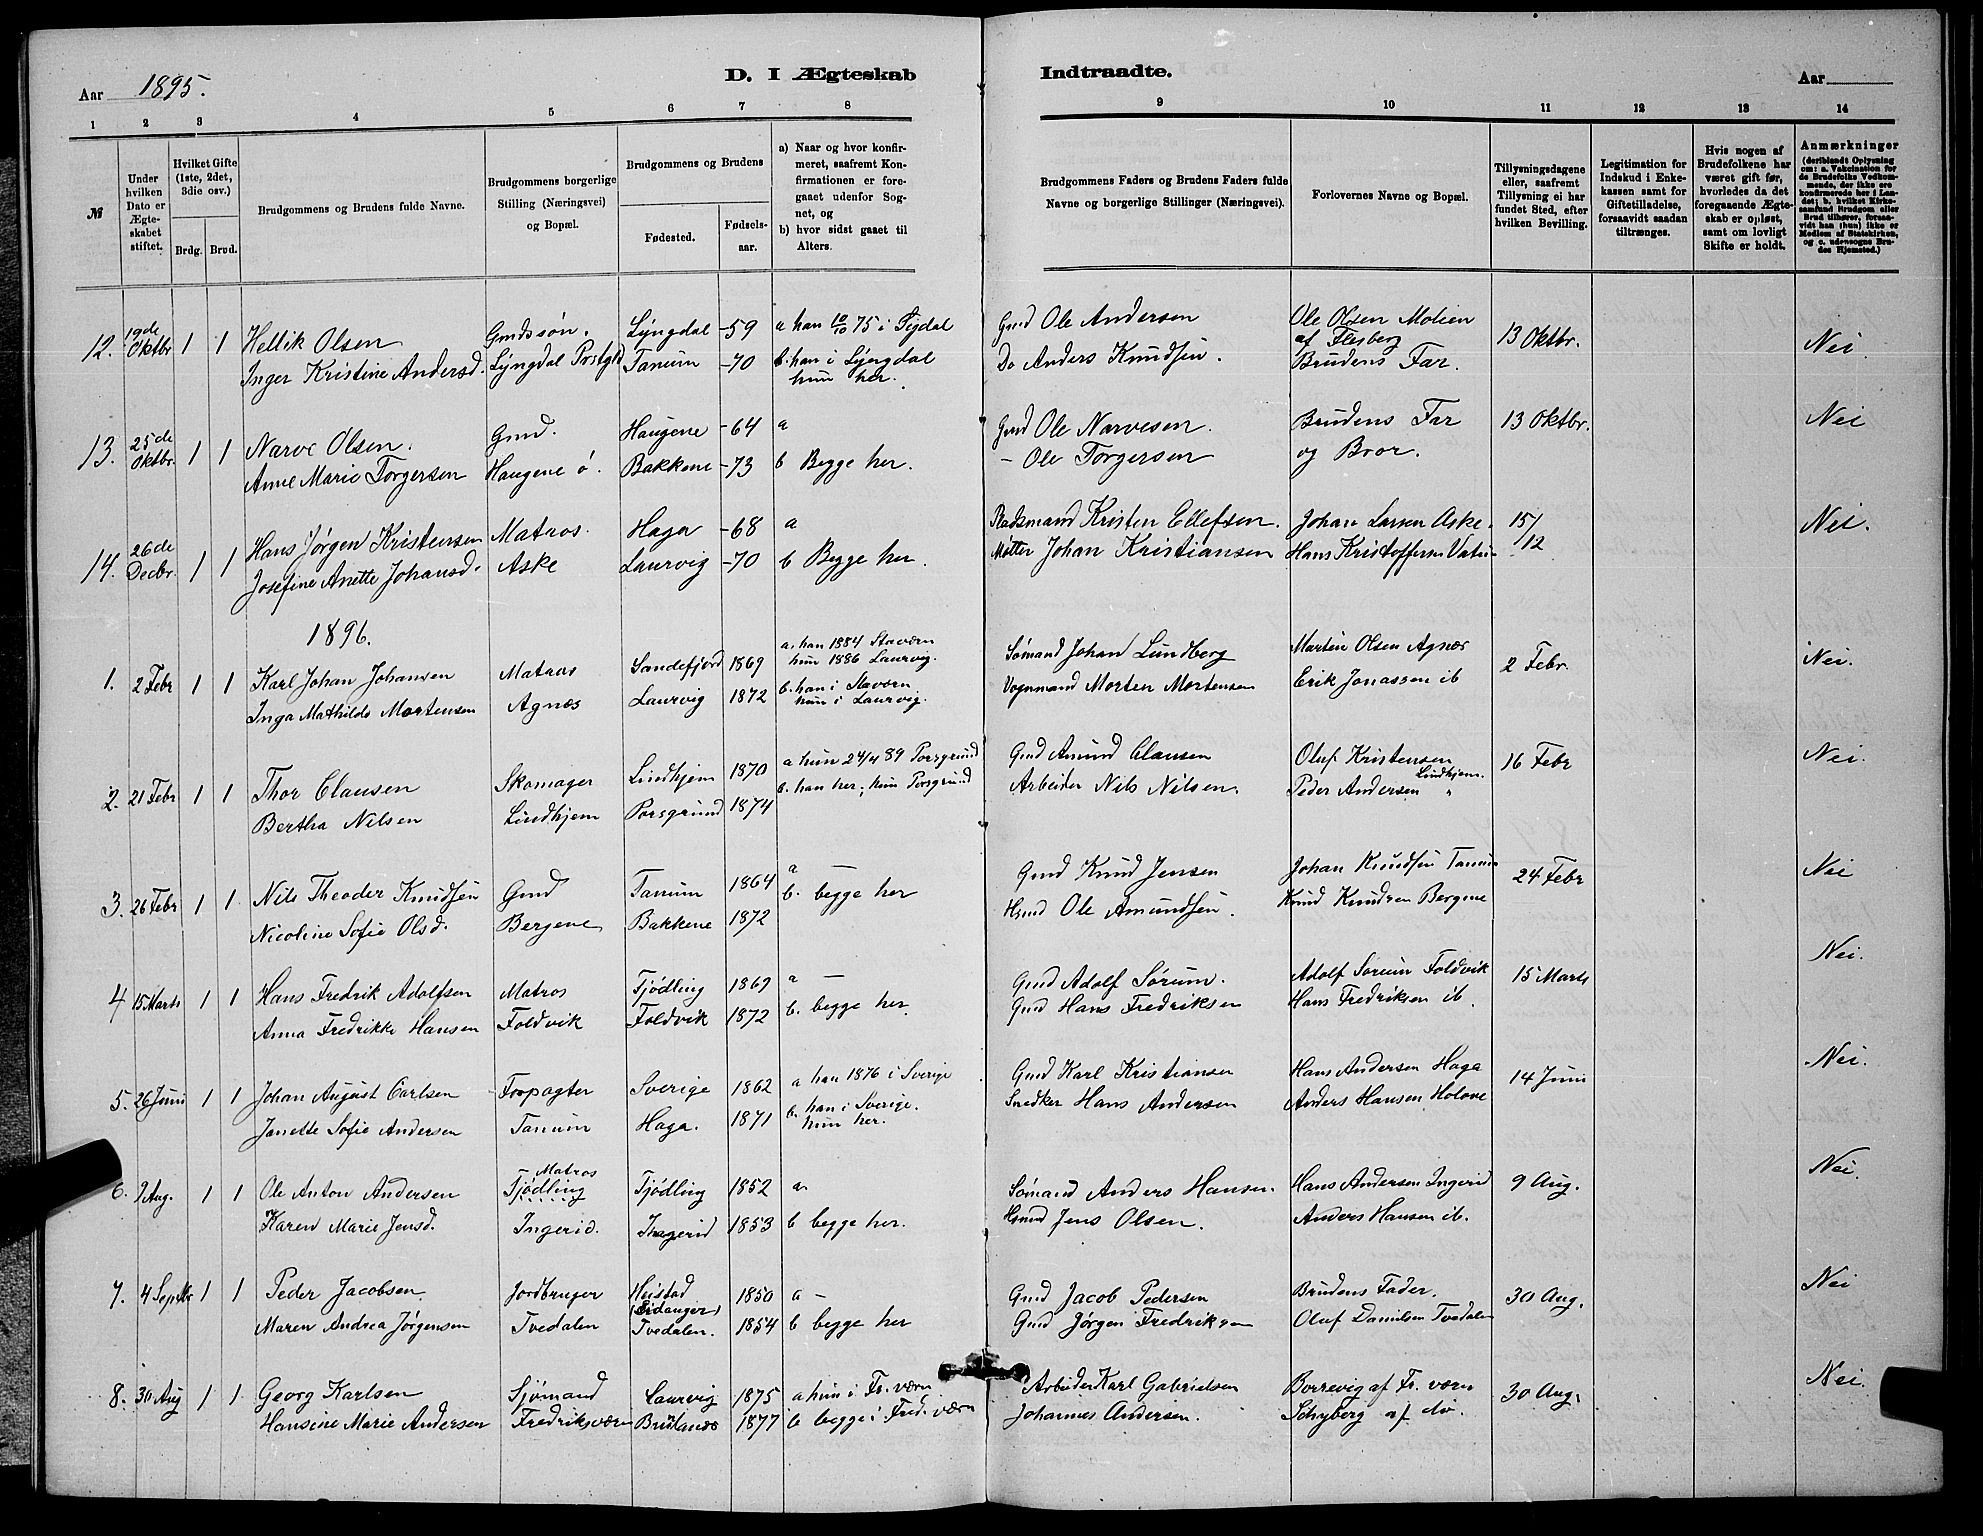 Aar 1895.
D. I Ægteskab
Indtraadte.
Aar
1 2 3 4 5 6 7 8
9 10 11 12 13 14
№
Under hvilken Dato er Ægteskabet stiftet.
Hvilket Gifte (1ste, 2det, 3die osv.)
Brdg. Brud.
Brudgommens og Brudens fulde Navne.
Brudgommens borgerlige Stilling (Næringsvei) og Bopæl.
Brudgommens og Brudens
Fødested.
Fødselsaar.
a) Naar og hvor konfirmeret, saafremt Konfirmationen er foregaaet udenfor Sognet, og
b) hvor sidst gaaet til Alters.
Brudgommens Faders og Brudens Faders fulde Navne og borgerlige Stillinger (Næringsvei).
Forlovernes Navne og Bopæl.
Tillysningsdagene eller, saafremt Tillysning ei har fundet Sted, efter hvilken Bevilling.
Legitimation for Indskud i Enkekassen samt for Giftetilladelse, forsaavidt saadan tiltrænges.
Hvis nogen af Brudefolkene har været gift før, hvorledes da det foregaaende Ægteskab er opløst, samt om lovligt Skifte er holdt.
Anmærkninger
(deriblandt Oplysning om: a. Vakcination for de Brudefolks Vedkommende, der ikke ere konfirmerede her i Landet; b. hvilket Kirkesamfund Brudgom eller Brud tilhører, forsaavidt han (hun) ikke er Medlem af Statskirken, og c. udensogns Brudes Hjemsted.)
12. 19de Oktbr 1 1 Hellik Olsen Gmdssøn. Lyngdal -59 a han 10/10 75 i Sigdal Gmd Ole Andersen Ole Olsen Molien af Flesberg 13 Oktbr. Nei.
Inger Kristine Andersd. Lyngdal Prstgld Tanum -70 b. han i Lyngdal hun her. Do Anders Knudsen. Brudens Far.
13. 25de Oktbr. 1 1 Narve Olsen. Gmd. Haugene -64 a Gmd Ole Narvesen. Brudens Far 13 Oktbr. Nei
Anne Marie Torgersen Haugene ø. Bakkene -73 b Begge her. - Ole Torgersen og Bror.
14. 26de Decbr. 1 1 Hans Jørgen Kristensen Matros. Haga -68 a Kristen Ellefsen. Johan Larsen Aske. 15/12 Nei.
Josefine Anette Johansd. Aske Laurvig -70 b Begge her. Johan Kristiansen Hans Kristoffersen
1896.
1. 2 Febr 1 1 Karl Johan Johansen Matros Sandefjord 1869 a. han 1884 Stavern hun 1886 Laurvig. Sømand Johan Lundberg Martin Olsen Agnæs 2 Febr. Nei.
Inga Mathilde Mortensen Agnæs Laurvig 1872 b. han i Stavern hun i Laurvig. Vognmand Morten Mortensen Erik Jonassen ib
2. 21 Febr 1 1 Thor Clausen Skomager Lindhjem 1870 a hun 24/4 89 Porsgrund Gmd Amund Clausen Oluf Kristensen Lindhjem. 16 Febr Nei.
Bertha Nilsen Lindhjem Porsgrund 1874 b. han her; hun Porsgrund Arbeider Nils Nilsen. Peder Andersen "
3. 26 Febr 1 1 Nils Theodor Knudsen Gmd Tanum 1864 a — Gmd Knud Jensen Johan Knudsen Tanum 24 Febr Nei
Nicoline Sofie Olsd. Bergene Bakkene 1872 b. begge her Hsmd Ole Amundsen. Knud Knudsen Bergene
4 15 Marts 1 1 Hans Fredrik Adolfsen Matros Tjødling 1869 a — Gmd Adolf Sørum. Adolf Sørum Foldvik 15 Marts Nei.
Anna Fredrikke Hansen Foldvik Foldvik 1872 b. begge her. Gmd Hans Fredriksen Hans Fredriksen ib.
5. 26 Juni 1 1 Johan August Carlsen Forpagter Sverige 1862 a han 1876 i Sverige Gmd Karl Kristiansen Hans Andersen Haga 14 Juni Nei.
Janette Sofie Andersen Tanum Haga. 1871 b. han i Sverige. hun her. Snedker Hans Andersen Anders Hansen Holove
6. 9 Aug. 1 1 Ole Anton Andersen Matros Tjødling Tjødling 1852 a Sømand Anders Hansen. Hans Andersen Ingerid 9 Aug. Nei.
Karen Marie Jensd. Ingerid. Ingerid 1853 b begge her. Hsmd Jens Olsen. Anders Hansen ib.
7. 4 Septbr 1 1 Peder Jacobsen Jordbruger Heistad (Eidanger) 1850 a - Gmd Jacob Pedersen Brudens Fader. 30 Aug. Nei
Maren Andrea Jørgensen Tvedalen Tvedalen. 1854 b begge her Gmd Jørgen Fredriksen Oluf Danielsen Tvedalen
8. 30 Aug 1 1 Georg Karlsen Sjømand Laurvig 1875 a hun i Fr.værn Arbeider Karl Gabrielsen Borrevig af Fr.værn 30 Aug. Nei.
Hansine Marie Andersen Fredriksværn Brunlanes 1877 b begge i Fred.værn Johannes Andersen. Schyberg af do.